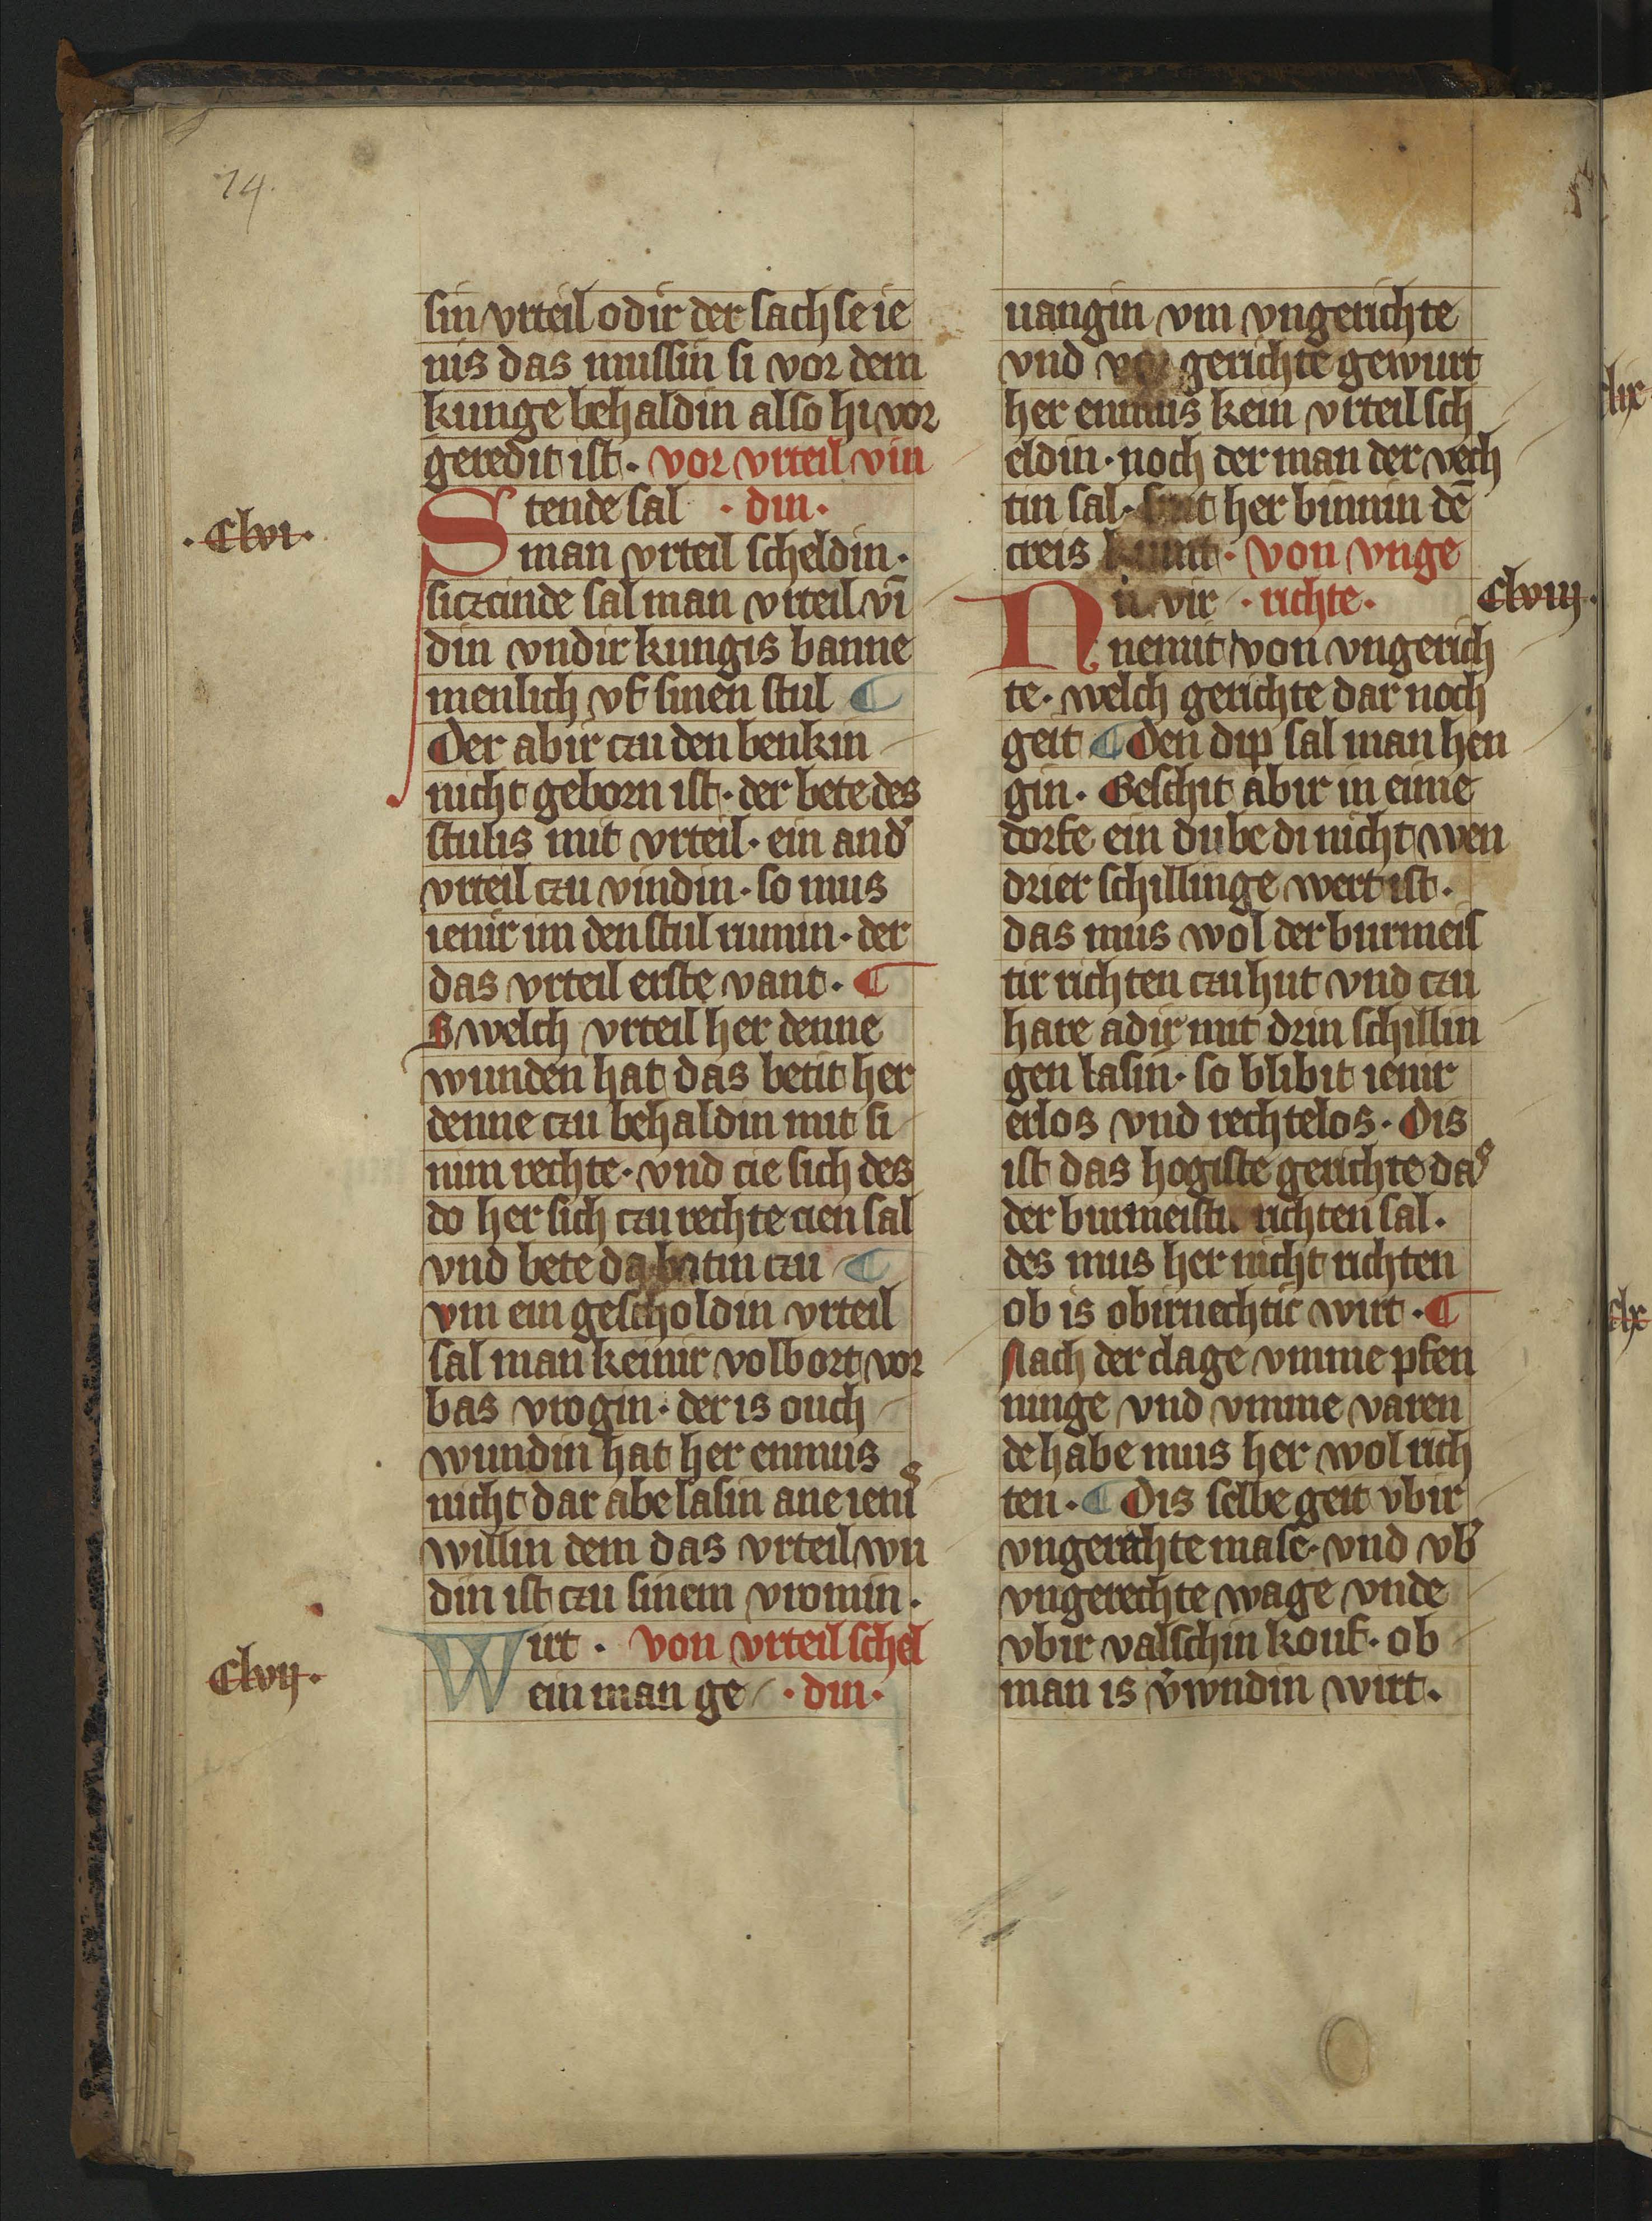 74.
sin vrteil odir der sachse ie
nis das mussin si vor dem
kunge behaldin also hi vor
geredit ist · vor vrteil vin
Stende sal · din ·
· Clvi ·
man vrteil scheldin ·
siczcinde sal man vrteil vī
din vndir kungis banne
menlich vf sinen stul ¶
Der abir czu den benkin
nicht geborn ist · der bete des
stulis mit vrteil · ein and̾
vrteil czu vindin · so mus
ienir im den stul rumin · der
das vrteil erste vant · ¶
Swelch vrteil her denne
wunden hat das betit her
denne czu behaldin mit si
nim rechte · vnd cie sich des
do her sich czu rechte cien sal
vnd bete czu ¶
vm ein gescholdin vrteil
sal man keinir volbort vor
bas vrogin · der is ouch
wundin hat her enmus
nicht dar abe lasin ane ieni̾
willin dem das vrteil wn
din ist czu sinem vromin ·
Wirt · von vrteil schel
Clvij ·
ein man ge · din ·
uangin vm vngerichte
vnd gerichte gewurt
her enmus kein vrteil sch
eldin · noch der man der vech
tin sal · her binnin dē
creis · von vnge
Nu vir · richte ·
Clviij ·
nemit von vngerich
te · welch gerichte dar noch
geit ¶ Den dip sal man hen
gin · Geschit abir in eime
dorfe ein dube di nicht wen
drier schillinge wert ist ·
das mus wol der burmeis
tir richten czu hut vnd czu
hare adir mit drin schillin
gen lasin · so blibit ienir
erlos vnd rechtelos · Dis
ist das hogiste gerichte da͛
der burmeistir richten sal ·
des mus her nicht richten
ob is obirnechtic wirt · ¶
Nach der clage vmme pfen
ninge vnd vmme varen
de habe mus her wol rich
ten · ¶ Dis selbe geit vbir
vngerechte mase · vnd vb̾
vngerechte wage vnde
vbir valschin kouf · ob
man is v̾wndin wirt ·
clix
clx